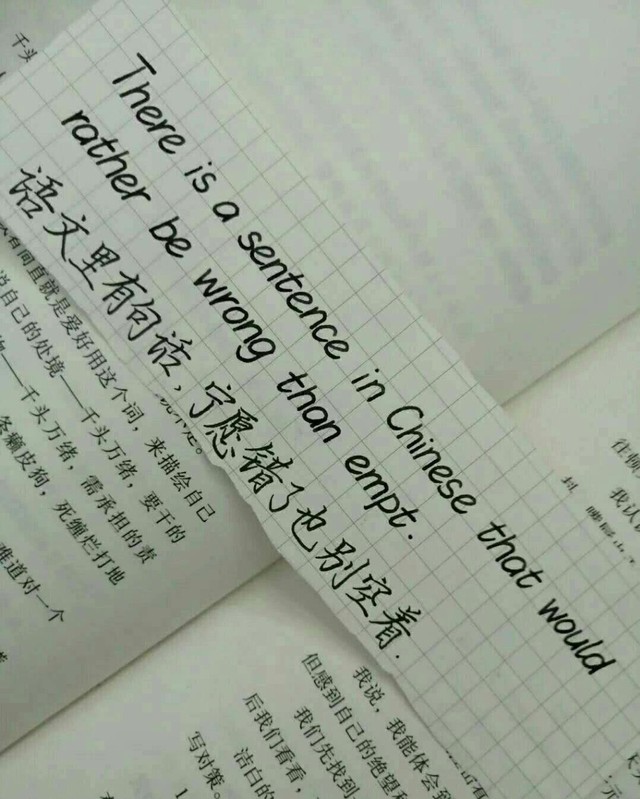 There is a sentence in Chinese that would
rather be wrong than empt.
语文里有句话,宁愿错了也别空着.
千头
有间直就是爱好用这个词,来描绘自己
说自己的处境——千头万绪,要干的
——千头万绪,需承担的责
条癞皮狗,死缠烂打地
难道对一个
往
我认
我说,我能体会到
但感到自己的绝望和
我们先找到
后我们看看,
洁白的
写对策。
1.